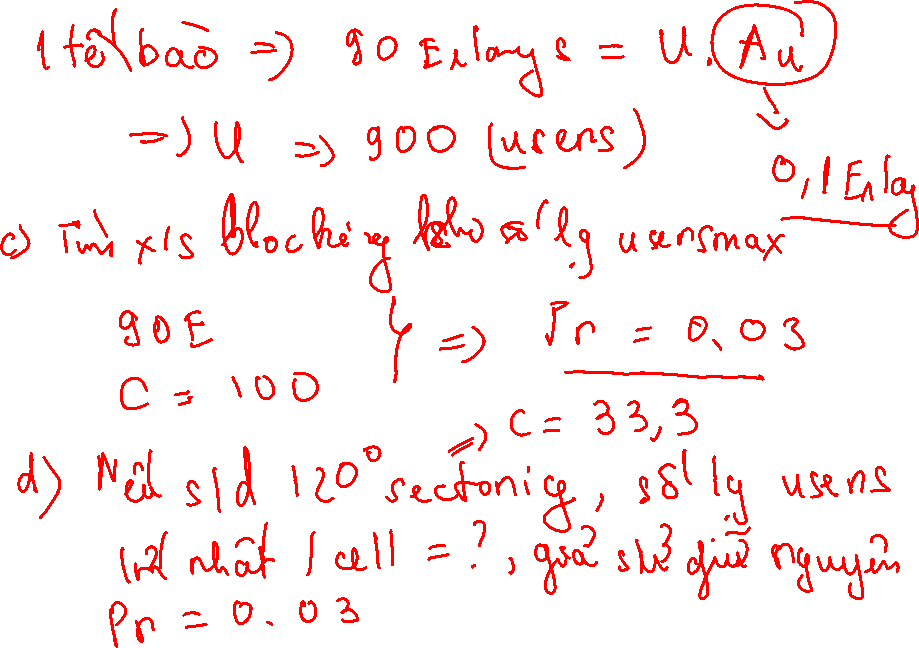 1 tế bào => 90 Erlangs = U.Au
=> U => 900 (users)
0,1 Erlag
c) Tìm x/s blocking khi số lg usersmax
90E
C = 100
=> Pr = 0.03
=> C = 33,3
d) Nếu s/d 120° sectoring, số lg users
lớn nhất / cell = ?, giả sử giữ nguyên
Pr = 0.03